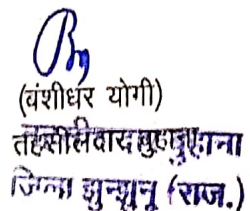 (वंशीधर योगी)
तहसीलदार बुहाना
जिला झुन्झुनू (राज.)